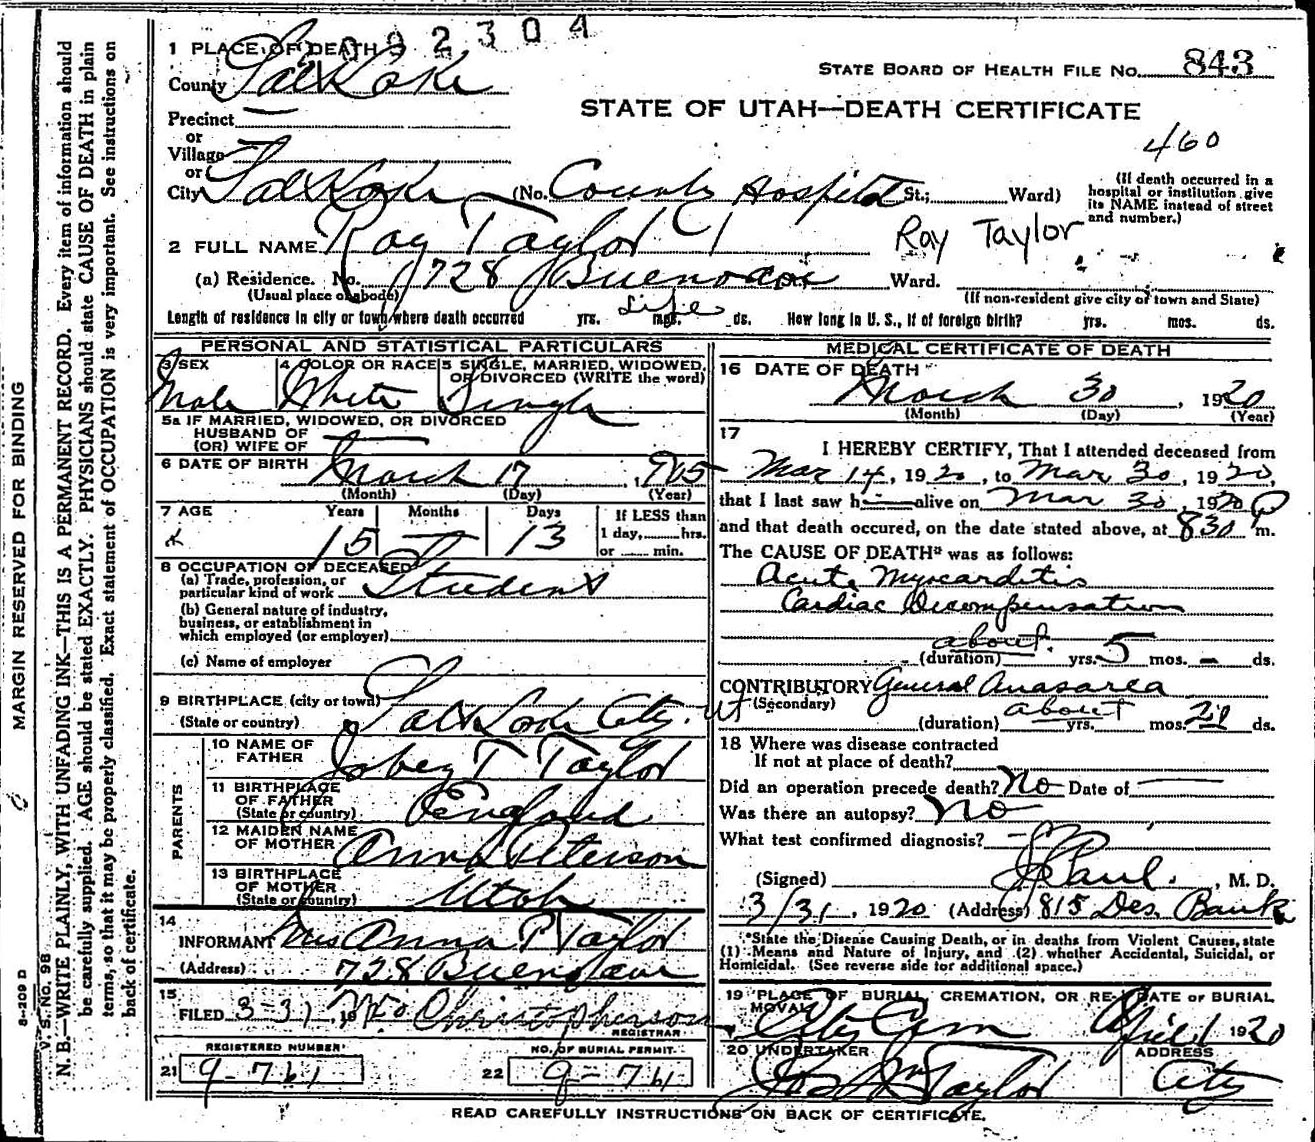 2092304
1 PLACE OF DEATH
County Salt Lake
STATE BOARD OF HEALTH FILE No. 843
STATE OF UTAH—DEATH CERTIFICATE
Precinct
or
Village
460
or
City Salt Lake (No. County Hospital St.; Ward)
(If death occurred in a hospital or institution give its NAME instead of street and number.)
2 FULL NAME Ray Taylor Ray Taylor
(a) Residence. No. 728 Ward.
(Usual place of abode) (If non-resident give city or town and State)
Length of residence in city or town where death occurred yrs. Life mos. ds. How long in U. S., if of foreign birth? yrs. mos. ds.
PERSONAL AND STATISTICAL PARTICULARS
3 SEX 4 COLOR OR RACE 5 SINGLE, MARRIED, WIDOWED, OR DIVORCED (WRITE the word)
Male White Single
5a IF MARRIED, WIDOWED, OR DIVORCED
HUSBAND OF
(OR) WIFE OF
6 DATE OF BIRTH March 17, 1905
(Month) (Day) (Year)
7 AGE Years Months Days If LESS than
1 day,......hrs.
or ...... min.
15 — 13
8 OCCUPATION OF DECEASED
(a) Trade, profession, or
particular kind of work Student
(b) General nature of industry,
business, or establishment in
which employed (or employer)
(c) Name of employer
9 BIRTHPLACE (city or town)
(State or country) Salt Lake City. Ut
PARENTS
10 NAME OF
FATHER T Taylor
11 BIRTHPLACE
OF FATHER
(State or country) England
12 MAIDEN NAME
OF MOTHER Anna Peterson
13 BIRTHPLACE
OF MOTHER
(State or country) Utah
14
INFORMANT Mrs Anna P Taylor
(Address) 728
15
FILED 3-31 19 Christopherson
REGISTRAR
REGISTERED NUMBER NO. OF BURIAL PERMIT.
21 9-761 22 9-761
MEDICAL CERTIFICATE OF DEATH
16 DATE OF DEATH
March 30, 1920
(Month) (Day) (Year)
17
I HEREBY CERTIFY, That I attended deceased from
Mar 14, 1920, to Mar 30, 1920,
that I last saw h— alive on Mar 30, 1920
and that death occured, on the date stated above, at 830 P m.
The CAUSE OF DEATH* was as follows:
Acute Myocarditis
Cardiac Decompensation
about
(duration) — yrs. 5 mos. — ds.
CONTRIBUTORY General Anasarca
(Secondary) about
(duration) yrs. mos. 21 ds.
18 Where was disease contracted
If not at place of death?
Did an operation precede death? No Date of —
Was there an autopsy? No
What test confirmed diagnosis? —
(Signed) Paul. , M. D.
3/31, 1920 (Address) 815 Des. Bank
*State the Disease Causing Death, or in deaths from Violent Causes, state
(1) Means and Nature of Injury, and (2) whether Accidental, Suicidal, or
Homicidal. (See reverse side for additional space.)
19 PLACE OF BURIAL, CREMATION, OR REMOVAL DATE OF BURIAL
City Cem April 1 1920
20 UNDERTAKER ADDRESS
Taylor City
READ CAREFULLY INSTRUCTIONS ON BACK OF CERTIFICATE.
MARGIN RESERVED FOR BINDING
8-209 D
V. S. No. 98
N. B.—WRITE PLAINLY, WITH UNFADING INK—THIS IS A PERMANENT RECORD. Every item of information should
be carefully supplied. AGE should be stated EXACTLY. PHYSICIANS should state CAUSE OF DEATH in plain
terms, so that it may be properly classified. Exact statement of OCCUPATION is very important. See instructions on
back of certificate.